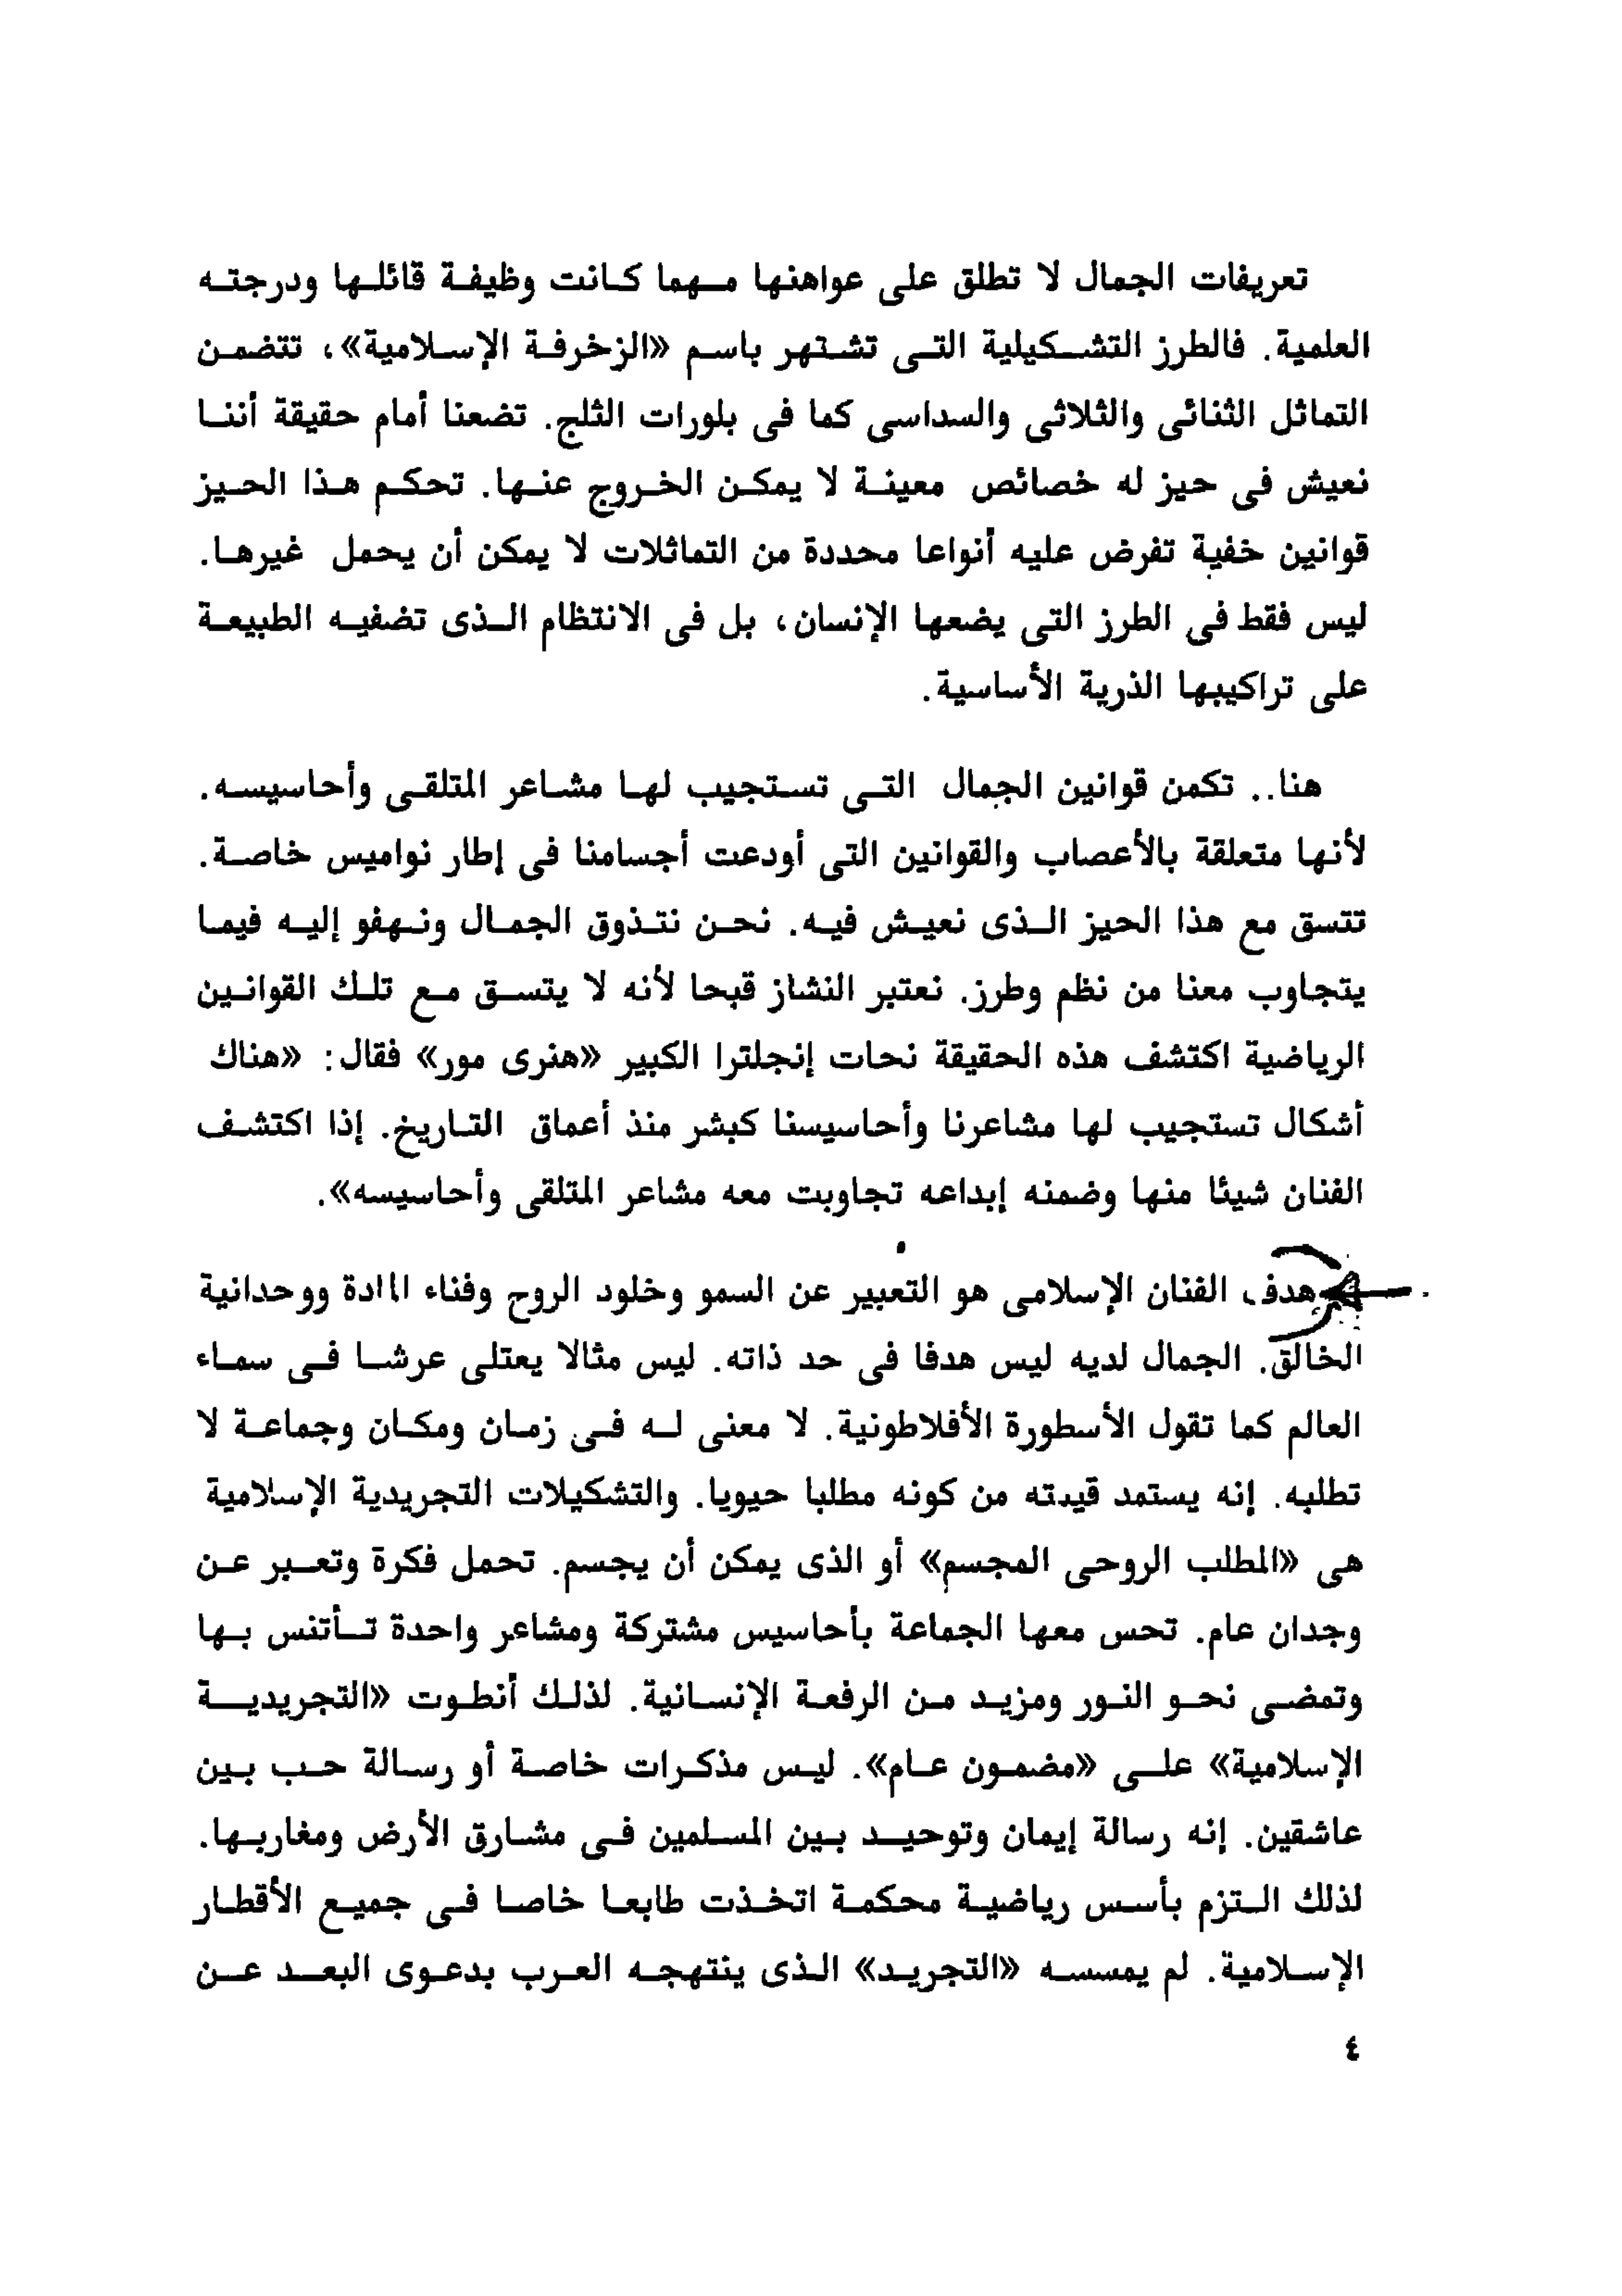 تعريفات الجمال لا تطلق على عواهنها مهما كانت وظيفة قائلها ودرجته
العلمية. فالطرز التشكيلية التى تشتهر باسم «الزخرفة الإسلامية»، تتضمن
التماثل الثنائى والثلاثى والسداسى كما فى بلورات الثلج. تضعنا أمام حقيقة أننا
نعيش فى حيز له خصائص معينة لا يمكن الخروج عنها. تحكم هذا الحيز
قوانين خفية تفرض عليه أنواعا محددة من التماثلات لا يمكن أن يحمل غيرها.
ليس فقط فى الطرز التى يضعها الإنسان، بل فى الانتظام الذى تضفيه الطبيعة
على تراكيبها الذرية الأساسية.
هنا.. تكمن قوانين الجمال التى تستجيب لها مشاعر المتلقى وأحاسيسه.
لأنها متعلقة بالأعصاب والقوانين التى أودعت أجسامنا فى إطار نواميس خاصة.
تتسق مع هذا الحيز الذى نعيش فيه. نحن نتذوق الجمال ونهفو إليه فيما
يتجاوب معنا من نظم وطرز. نعتبر النشاز قبحا لأنه لا يتسق مع تلك القوانين
الرياضية اكتشف هذه الحقيقة نحات إنجلترا الكبير «هنرى مور» فقال: «هناك
أشكال تستجيب لها مشاعرنا وأحاسيسنا كبشر منذ أعماق التاريخ. إذا اكتشف
الفنان شيئا منها وضمنه إبداعه تجاوبت معه مشاعر المتلقى وأحاسيسه».
هدف الفنان الإسلامى هو التعبير عن السمو وخلود الروح وفناء المادة ووحدانية
الخالق. الجمال لديه ليس هدفا فى حد ذاته. ليس مثالا يعتلى عرشا فى سماء
العالم كما تقول الأسطورة الأفلاطونية. لا معنى له فى زمان ومكان وجماعة لا
تطلبه. إنه يستمد قيمته من كونه مطلبا حيويا. والتشكيلات التجريدية الإسلامية
هى «المطلب الروحى المجسم» أو الذى يمكن أن يجسم. تحمل فكرة وتعبر عن
وجدان عام. تحس معها الجماعة بأحاسيس مشتركة ومشاعر واحدة تأتنس بها
وتمضى نحو النور ومزيد من الرفعة الإنسانية. لذلك أنطوت «التجريدية
الإسلامية» على «مضمون عام». ليس مذكرات خاصة أو رسالة حب بين
عاشقين. إنه رسالة إيمان وتوحيد بين المسلمين فى مشارق الأرض ومغاربها.
لذلك التزم بأسس رياضية محكمة اتخذت طابعا خاصا فى جميع الأقطار
الإسلامية. لم يمسسه «التجريد» الذى ينتهجه العرب بدعوى البعد عن
٤